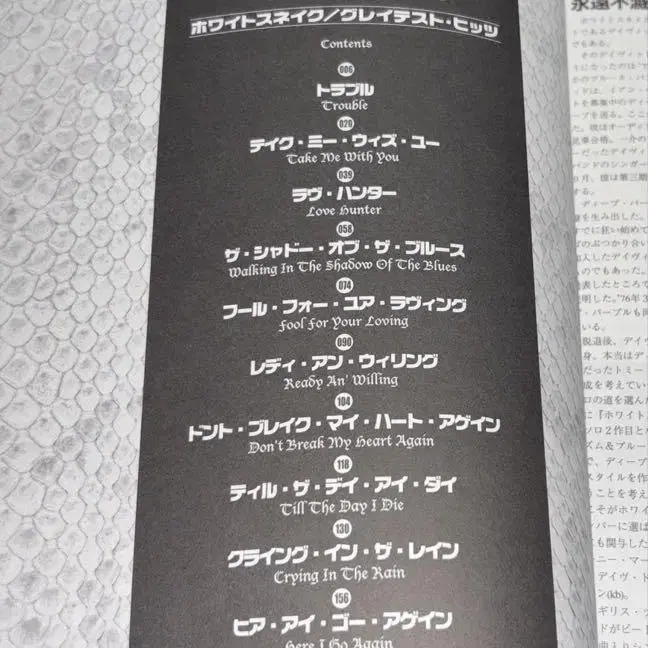 ホワイトスネイク/グレイテスト・ヒッツ
Contents
006
トラブル
Trouble
020
テイク・ミー・ウィズ・ユー
Take Me With You
039
ラヴ・ハンター
Love Hunter
058
ザ・シャドー・オブ・ザ・ブルース
Walking In The Shadow Of The Blues
074
フール・フォー・ユア・ラヴィング
Fool For Your Loving
090
レディ・アン・ウィリング
Ready An' Willing
104
ドント・ブレイク・マイ・ハート・アゲイン
Don't Break My Heart Again
118
ティル・ザ・デイ・アイ・ダイ
Till The Day I Die
130
クライング・イン・ザ・レイン
Crying In The Rain
156
ヒア・アイ・ゴー・アゲイン
Here I Go Again
永遠不滅
ホワイトスネイ
トであるデイヴィ
でもある。
そのデイヴィッ
になったのは
のブルース・バ
ドは、イアン・
トを募集中のディ
ープを送る。ここ
た。彼はオーディ
見事合格。一介の
ーだったデイヴィ
バンドのシンガー
月、彼は第三期
する。
ディープ・パー
を生み出した。
でに狂い始めて
のぶつかり合い
加入したデイヴィ
のでもあった。
表したところで
明した。'76年3
・パープルも同
いる。
脱退後、デイヴ
身、本当はディ
だったトミー・
成を考えてい
ロの道を選んだ
に『ホワイト
ソロ2作目と
ズム&ブルー
で、ディープ
スタイルを作
うことを考え
こそがホワイ
バーに選ば
も関与した
ニー・マー
デイヴ・ド
ン(kb)。
ギリス・ツ
ドがビート
曲入りシン